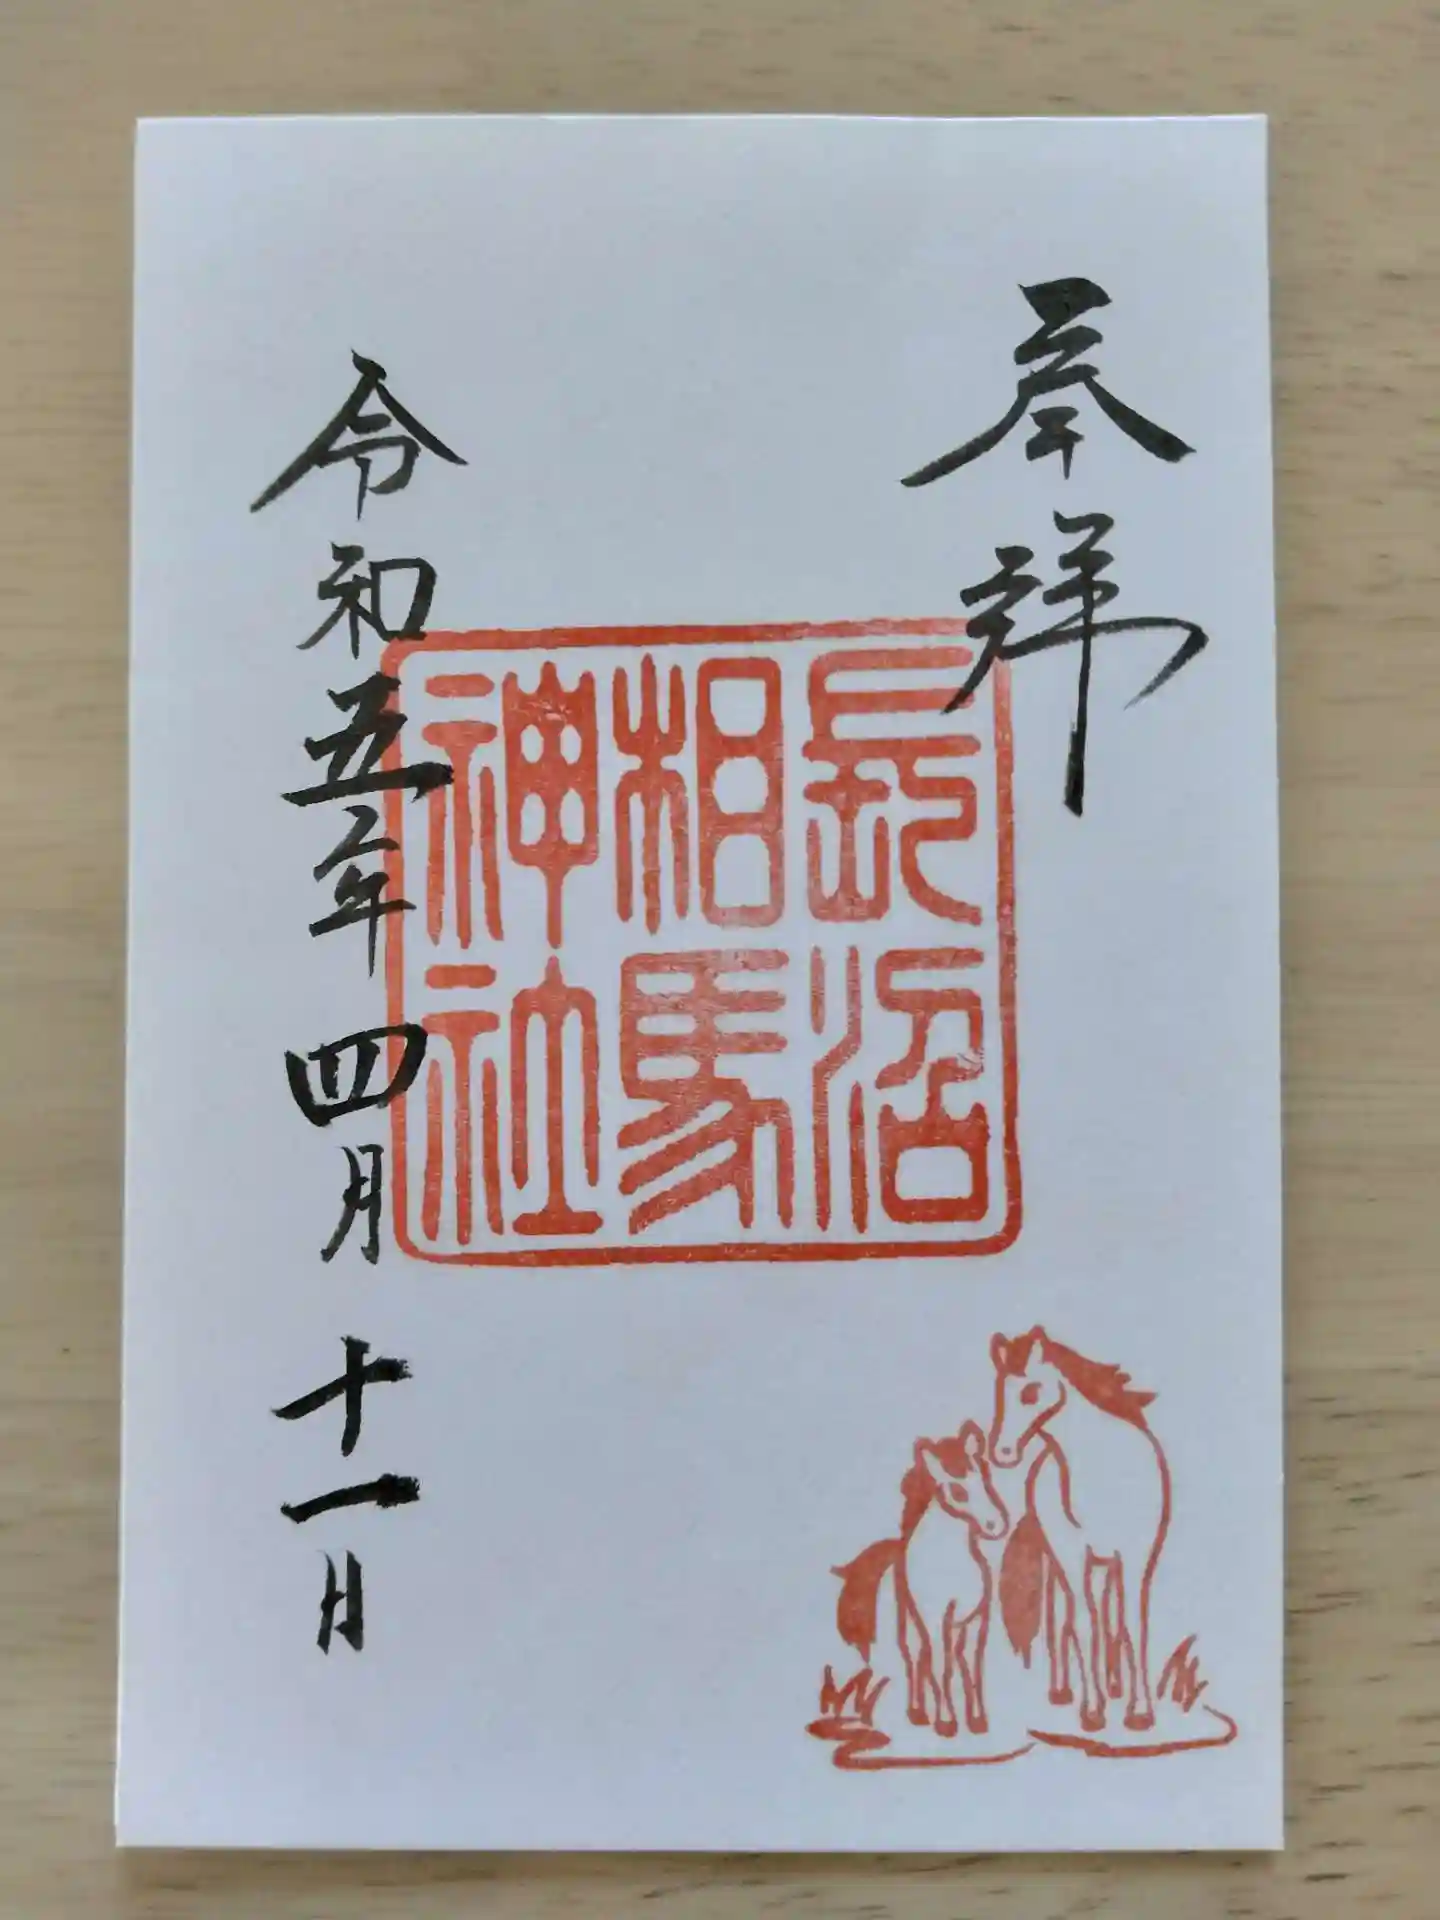 奉拝
長沼
相馬
神社
令和五年四月十一日